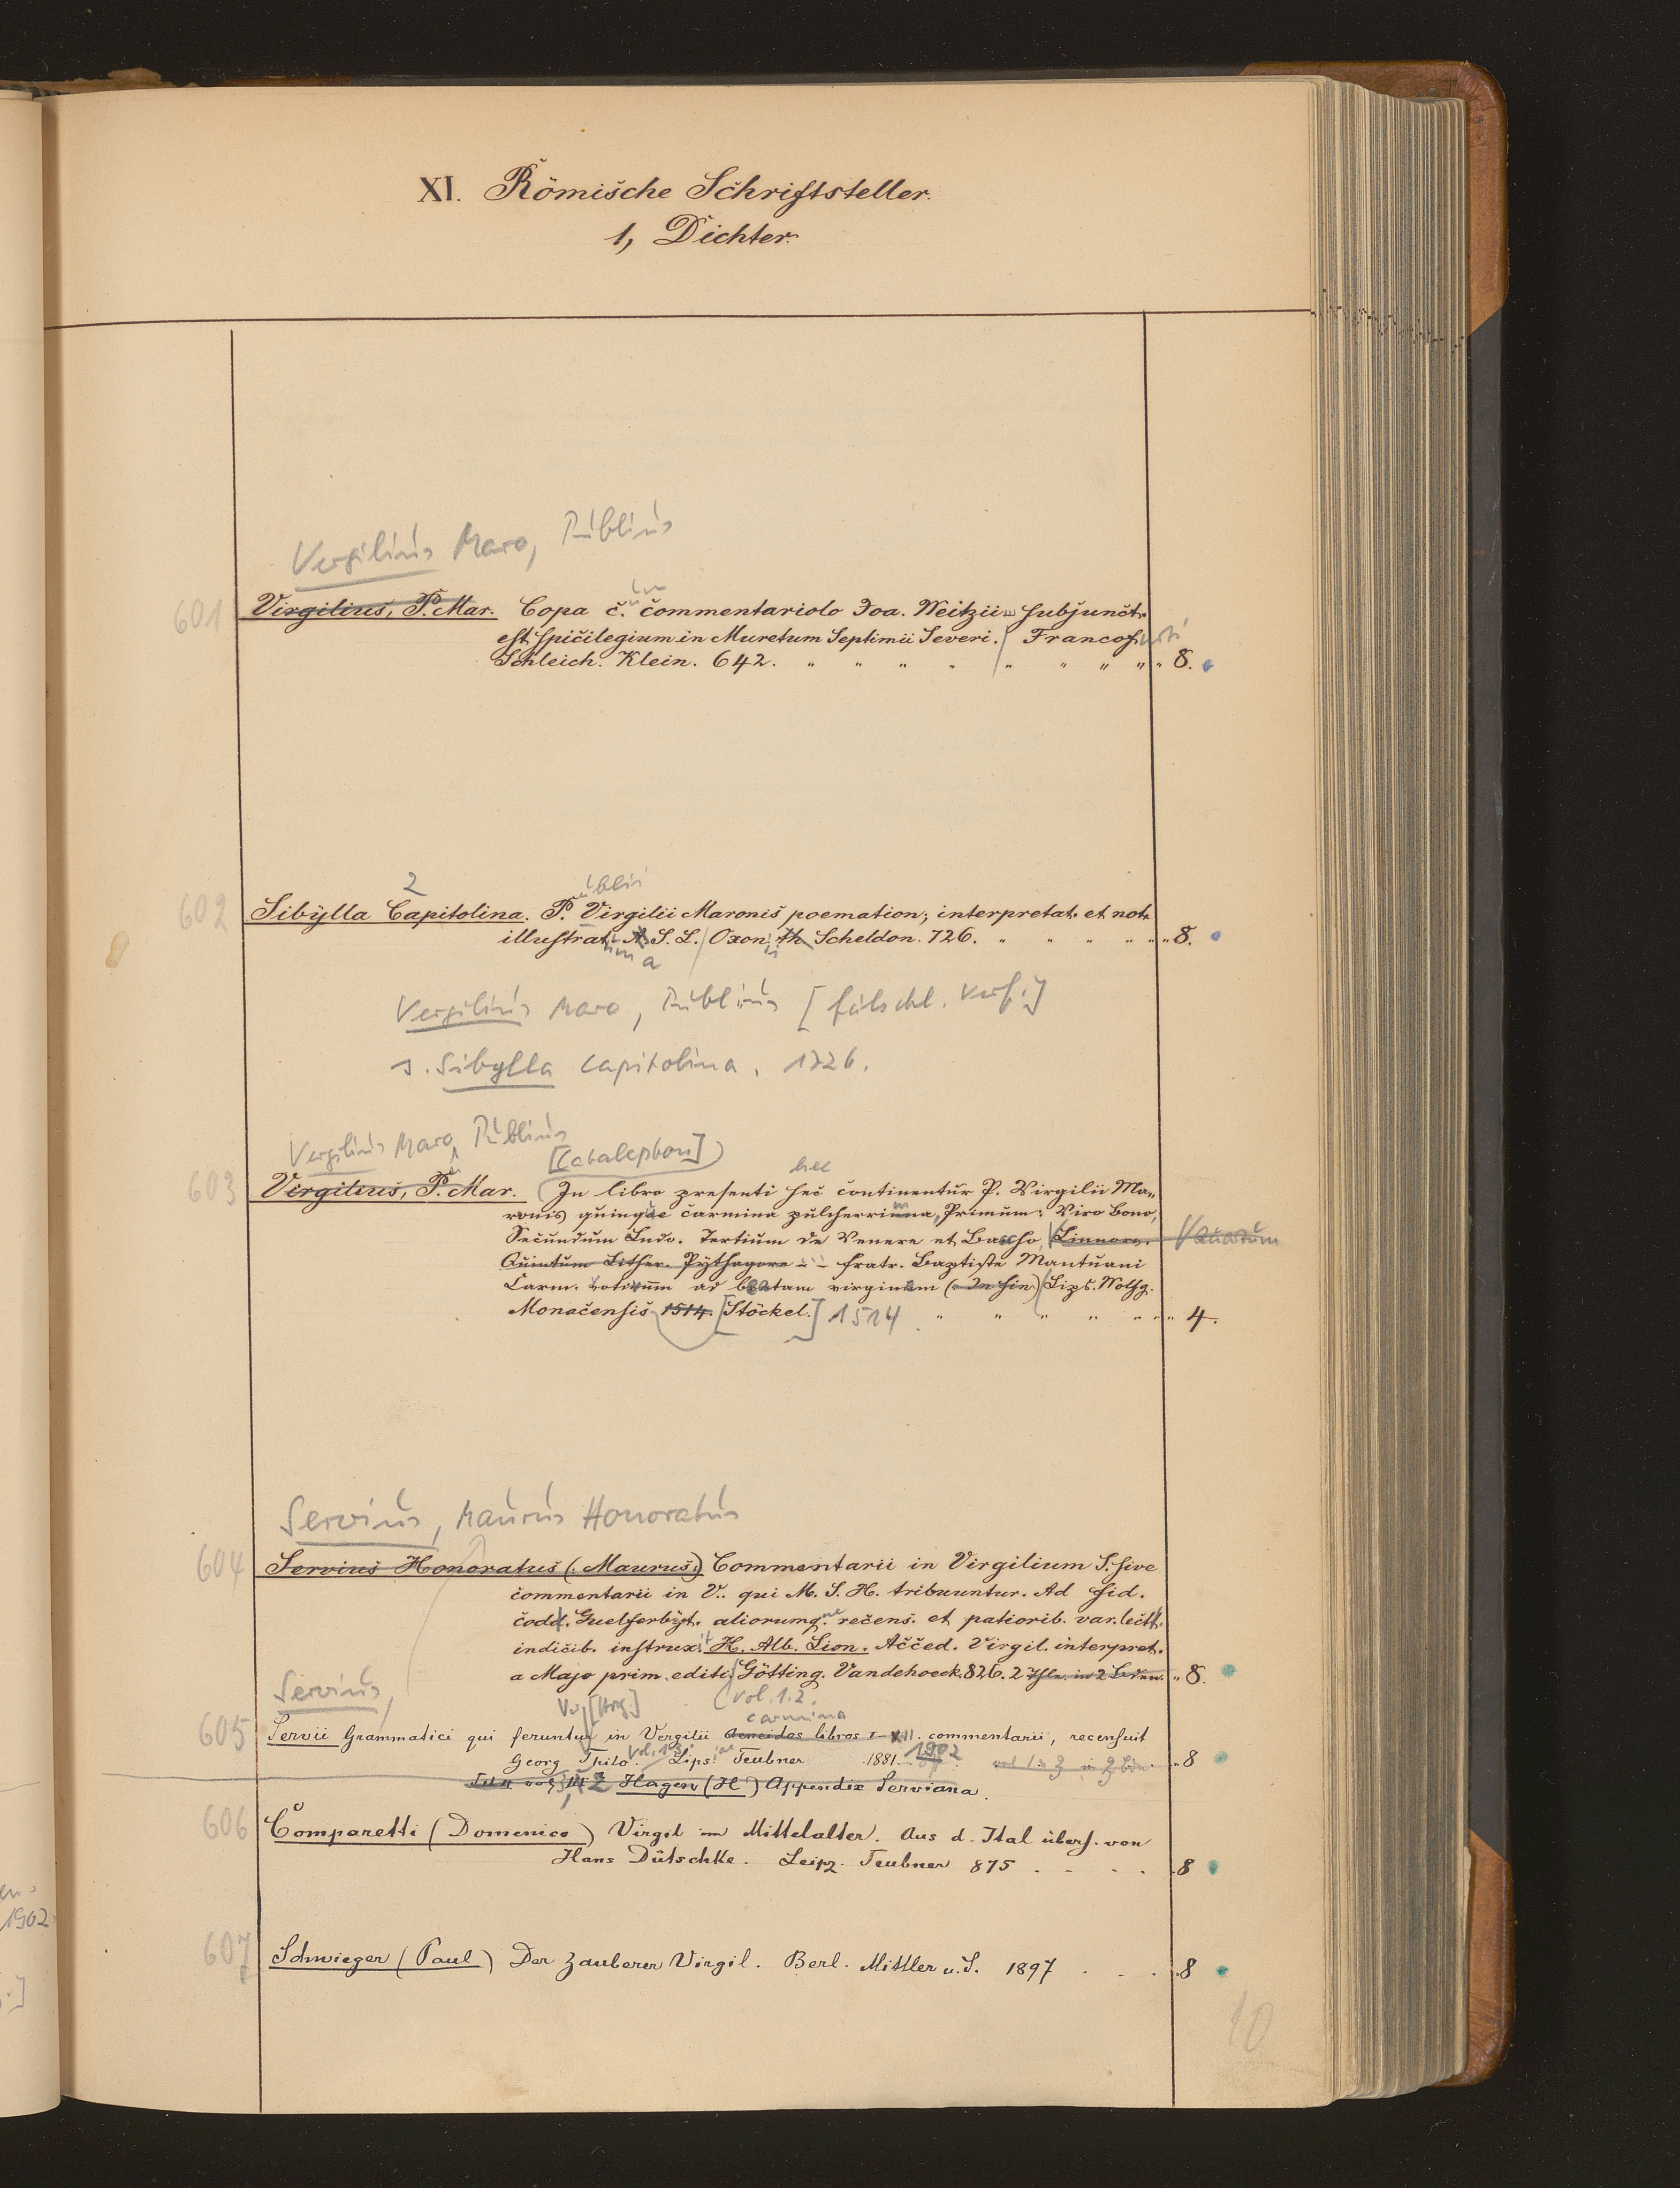 XI. Römische Schriftsteller.
1, Dichter.
Vergilius Maro, Publius
601 Virgilius, P. Mar. Copa c. commentariolo Joa. Weitzii subjunct.
est spicilegium in Muretum Septimii Severi. Francofurti
Schleich. Klein. 642. " " " " " " " " " 8.
2 ublii
602 Sibylla Capitolina. P. Virgilii Maronis poemation; interpretat. et not.
illustrat. A S. L. Oxon. th Scheldon. 726. " " " " " " 8.
Vergilius Maro, Publius [fälschl. Verf.]
s. Sibylla Capitolina. 1726.
Vergilius Maro, Publius
[Catalepton] hec
603 Virgilius, P. Mar. In libro presenti hec continentur P. Virgilii Ma-
ronis quinque carmina pulcherrima, Primum: Viro Bono,
Secundum Ludo. Tertium de Venere et Bacho, Linnore.
Quintum Lither. Pythagore - - fratr. Baptiste Mantuani
Carm. votivum ad beatam virginem (In fin.) Lips. Wolfg.
Monacensis 1514. [Stöckel.] 1514 " " " " " " " 4.
Servius, Maurus Honoratus
604 Servius Honoratus (: Maurus:) Commentarii in Virgilium S. sive
commentarii in V.. qui M. S. H. tribuuntur. Ad fid.
codd. Guelferbyt. aliorumq. recens. et patiorib. var. lectt.
indicib. instruxit H. Alb. Lion. Acced. Virgil. interpret.
a Majo prim. editi. Götting. Vandehoeck. 826. 2 Thle. in 2 Bden. " 8.
Servius,
Vol. 1.2.
carmina
605 Servii Grammatici qui feruntur in Vergilii Aeneidos libros I-XII. commentarii, recensuit
Georg Thilo. Lips. Teubner 1881. 1902 " 8
Hagen (H) Appendix Serviana.
606 Comparetti (Domenico) Virgil im Mittelalter. Aus d. Ital übers. von
Hans Dütschke. Leipz. Teubner 875 . . . . . 8
607 Schwieger (Paul) Der Zauberer Virgil. Berl. Mittler u. S. 1897 . . . . 8
10
1902